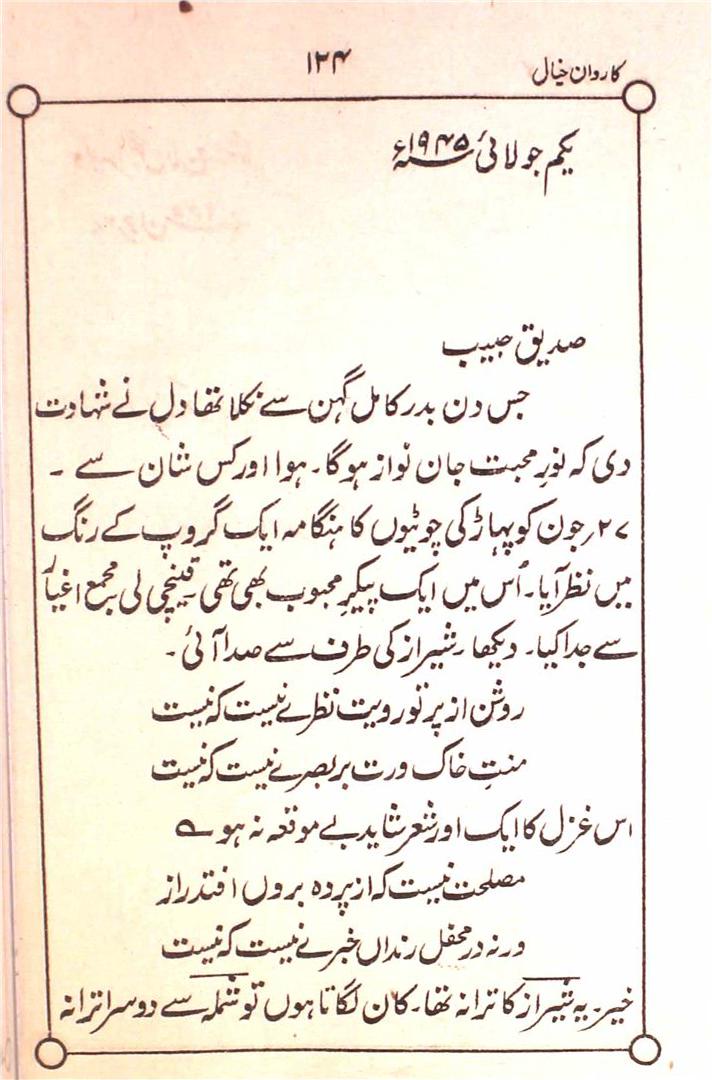 کاروان خیال
۱۲۴
یکم جولائی ۱۹۴۵ء
صدیق حبیب
جس دن بدر کامل گہن سے نکلا تھا دل نے شہادت
دی کہ نورِ محبت جان نواز ہوگا۔ ہوا اور کس شان سے ۔
۲۷؍جون کو پہاڑ کی چوٹیوں کا ہنگامہ ایک گروپ کے رنگ
میں نظر آیا۔ اُس میں ایک پیکرِ محبوب بھی تھی۔ قینچی لی مجمع اغیار
سے جدا کیا۔ دیکھا۔ شیراز کی طرف سے صدا آئی۔
روشن از پرتو رویت نظرے نیست کہ نیست
منتِ خاک درت بر بصرے نیست کہ نیست
اس غزل کا ایک اور شعر شاید بے موقعہ نہ ہو ؎
مصلحت نیست کہ از پردہ بروں افتد راز
ورنہ در محفل رنداں خبرے نیست کہ نیست
خیر۔ یہ شیراز کا ترانہ تھا۔ کان لگاتا ہوں تو شملہ سے دوسرا ترانہ